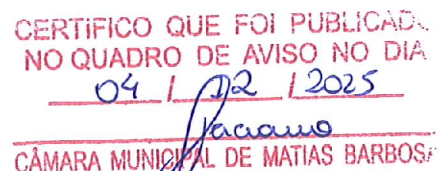 CERTIFICO QUE FOI PUBLICAD
NO QUADRO DE AVISO NO DIA
04 / 12 / 2025
CÂMARA MUNICIPAL DE MATIAS BARBOSA